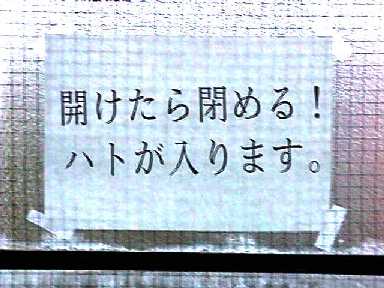 開けたら閉める！
ハトが入ります。